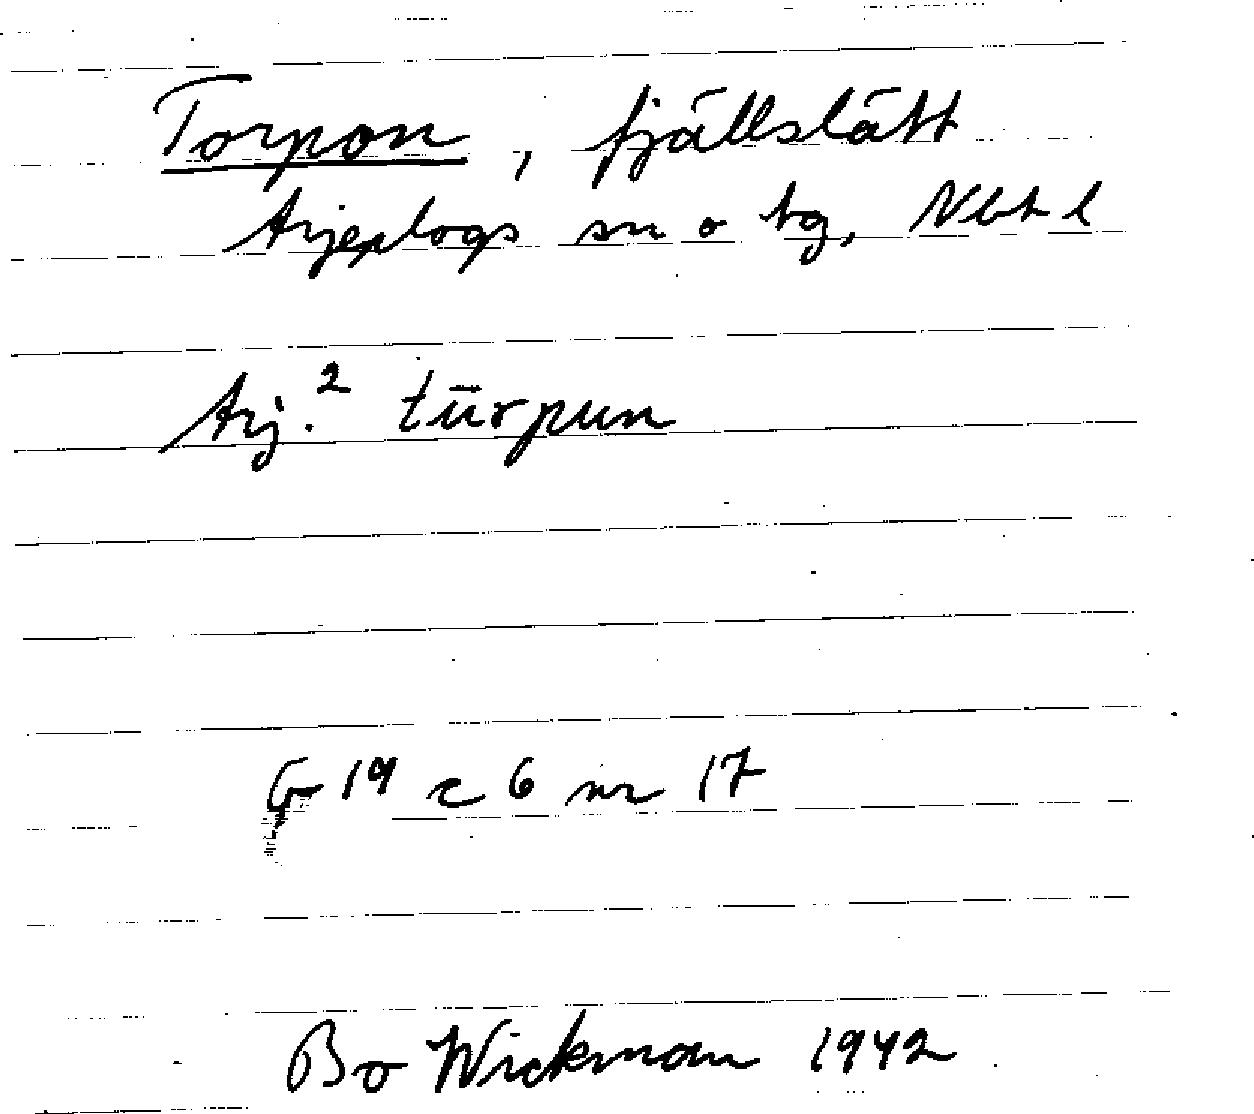 Torpon, fjällslätt
Arjeplogs sn o tg, Nbt l
Arj.² tūrpun
G 19 c 6 nr 17
Bo Wickman 1942